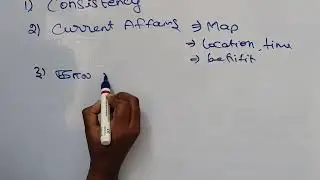 1) Consistency
2) Current Affairs → Map
→ Location, time
→ benifit
3)